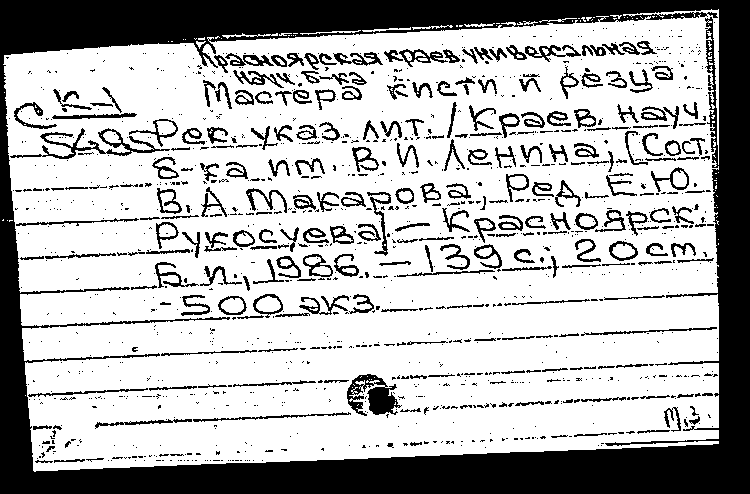 Красноярская краев. универсальная
науч. б-ка
Мастера кисти и резца:
С К-1
5495
Рек. указ. лит. / Краев. науч.
б-ка им. В. И. Ленина; [Сост.
В. А. Макарова; Ред. Е. Ю.
Рукосуева] — Красноярск:
Б. и., 1986. — 139 с.; 20 см.
- 500 экз.
М.З.